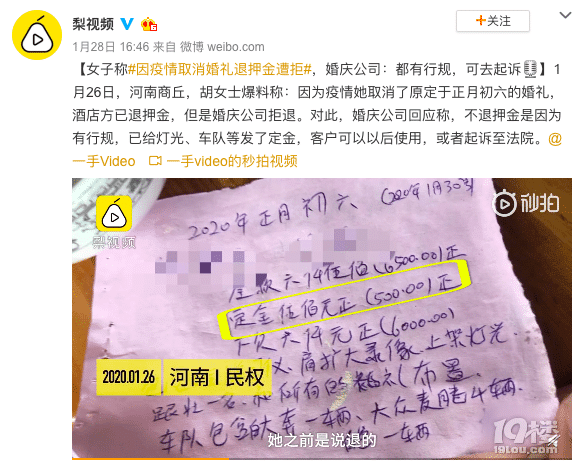 梨视频
+关注
1月28日 16:46 来自 微博 weibo.com
【女子称#因疫情取消婚礼退押金遭拒，婚庆公司：都有行规，可去起诉】1
月26日，河南商丘，胡女士爆料称：因为疫情她取消了原定于正月初六的婚礼，
酒店方已退押金，但是婚庆公司拒退。对此，婚庆公司回应称，不退押金是因为
有行规，已给灯光、车队等发了定金，客户可以以后使用，或者起诉至法院。@
一手Video 一手video的秒拍视频
梨视频
秒拍
2020年正月初六 (2020年1月30号)
全款六仟伍佰(6500.00)正
定金伍佰元正(500.00)正
下欠六仟元正(6000.00)
肩扛大录像上架灯光
2020.01.26 河南|民权
所有的婚礼布置
车队包含大奔一辆、大众麦腾4辆
一辆
她之前是说退的
19楼
19lou.com